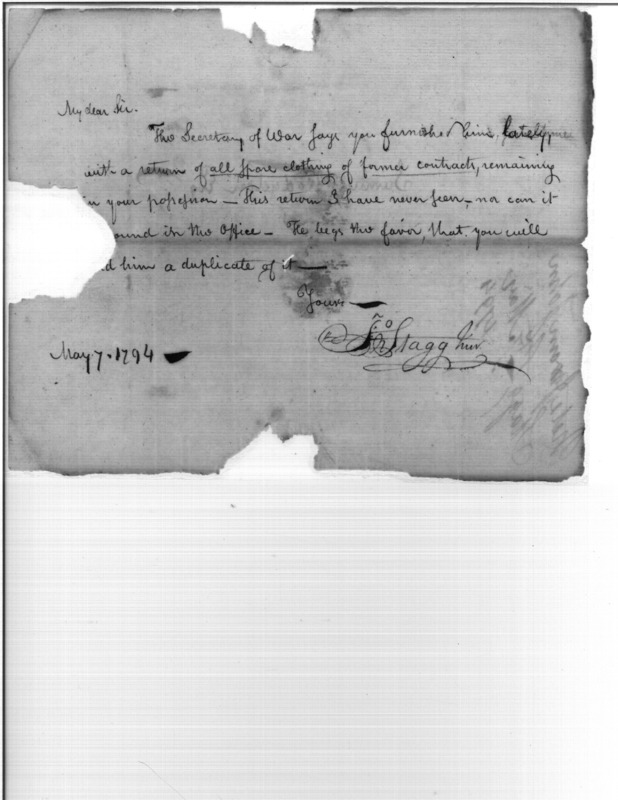 My dear Sir.
The Secretary of War says you furnished him, lately,
with a return of all spare clothing of former contracts, remaining
n your possession — This return I have never seen — nor can it
ound in the Office — He begs the favor, that you will
d him a duplicate of it —
Yours —
Jno Stagg Junr.
May 7. 1794